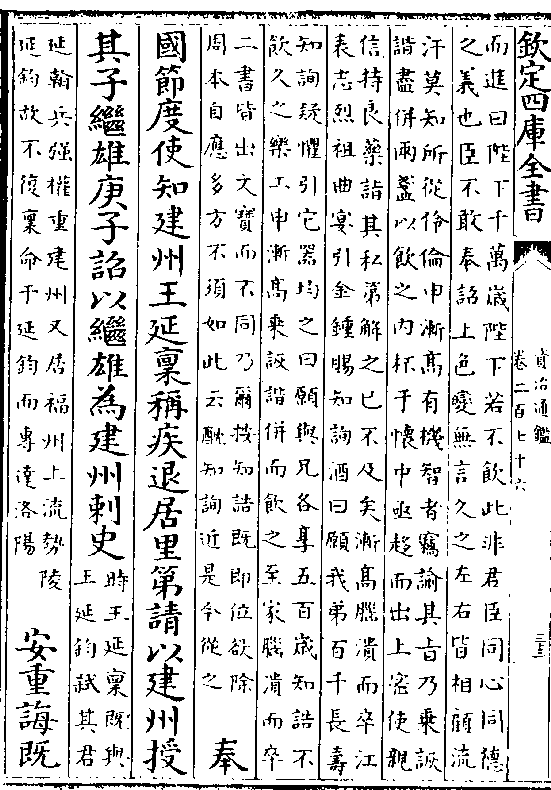 欽定四庫全書
資治通鑑
卷二百七十六
而進曰陛下千萬歲陛下若不飲此非君臣同心同德
之義也臣不敢奉詔上色變無言久之左右皆相顧流
汗莫知所從伶倫申漸髙有機智者竊諭其㫖乃乘詼
諧盡併兩盞以飲之内杯于懷中亟趨而出上密使親
信持良藥詣其私第解之已不及矣漸髙腦潰而卒江
表志烈祖曲宴引金鍾賜知詢酒曰願我弟百千長壽
知詢疑懼引它器均之曰願與兄各享五百歲知誥不
飲久之樂工申漸髙乘詼諧併而飲之至家腦潰而卒
二書皆出文寶而不同乃爾按知誥既即位欲除
周本自應多方不須如此云酖知詢近是今從之
奉
國節度使知建州王延稟稱疾退居里第請以建州授
其子繼雄庚子詔以繼雄為建州刺史
時王延稟既與
王延鈞弑其君
延翰兵强權重建州又居福州上流勢陵
延鈞故不復稟命于延鈞而專達洛陽
安重誨既